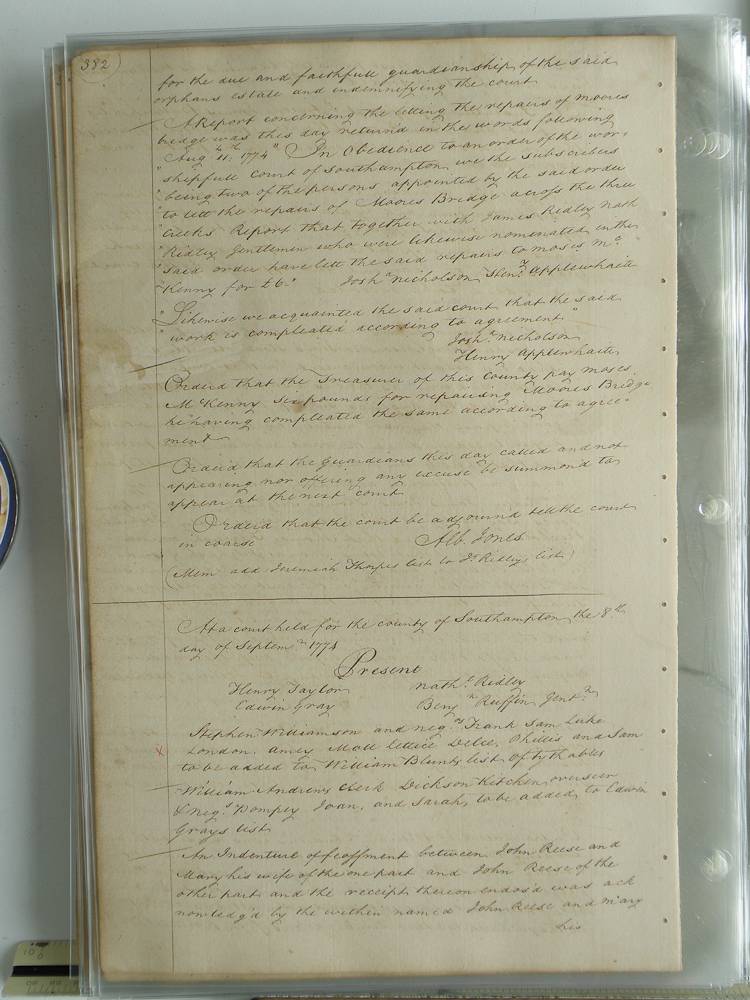 382
for the due and faithfull guardianship of the said
orphans estate and indemnifying the court
A Report concerning the letting the repairs of Moores
bridge was this day returnd in the words following
Aug st 11th 1774 " In Obedience to an order of the wor-
" shipfull Court of Southampton, we the subscribers
" being two of the persons appointed by the said order
" to lett the repairs of Moores Bridge across the three
" Creeks Report that together with James Ridley Nath
" Ridley Gentlemen who were likewise nominated in the
" said order have lett the said repairs to Moses Mc
" Kenny for £6." Josha Nicholson Heny Applewhaite
" Likewise we acquainted the said court that the said
" work is compleated according to agreement "
Josha Nicholson
Henry Applewhaite
Orderd that the Treasurer of this County pay Moses
McKenny six pounds for repairing Moores Bridge
he having compleated the same according to agree-
ment
Orderd that the Guardians this day called and not
appearing nor offering any excuse be summond to
appear at the next court
Orderd that the court be adjournd till the court
in coarse
Alb. Jones
(Mem add Jeremiah Thorpes list to Js Ridleys list)
At a court held for the county of Southampton the 8th
day of Septemr 1774
Present
Henry Taylor Nathl Ridley
Edwin Gray Benjn Ruffin Gentn
Stephen Williamson and negs Frank Sam Luke
London, Amey Moll Lettice Delce, Phillis and Sam
to be added to William Blunts list of tythables
William Andrews Clerk Dickson Kitchen overseer
& negs Pompey Joan, and Sarah, to be added to Edwin
Grays list
An Indenture of feoffment between John Reese and
Mary his wife of the one part and John Reese of the
other part and the receipt thereon endosd was ack
nowledg'd by the within named John Reese and Mary
his